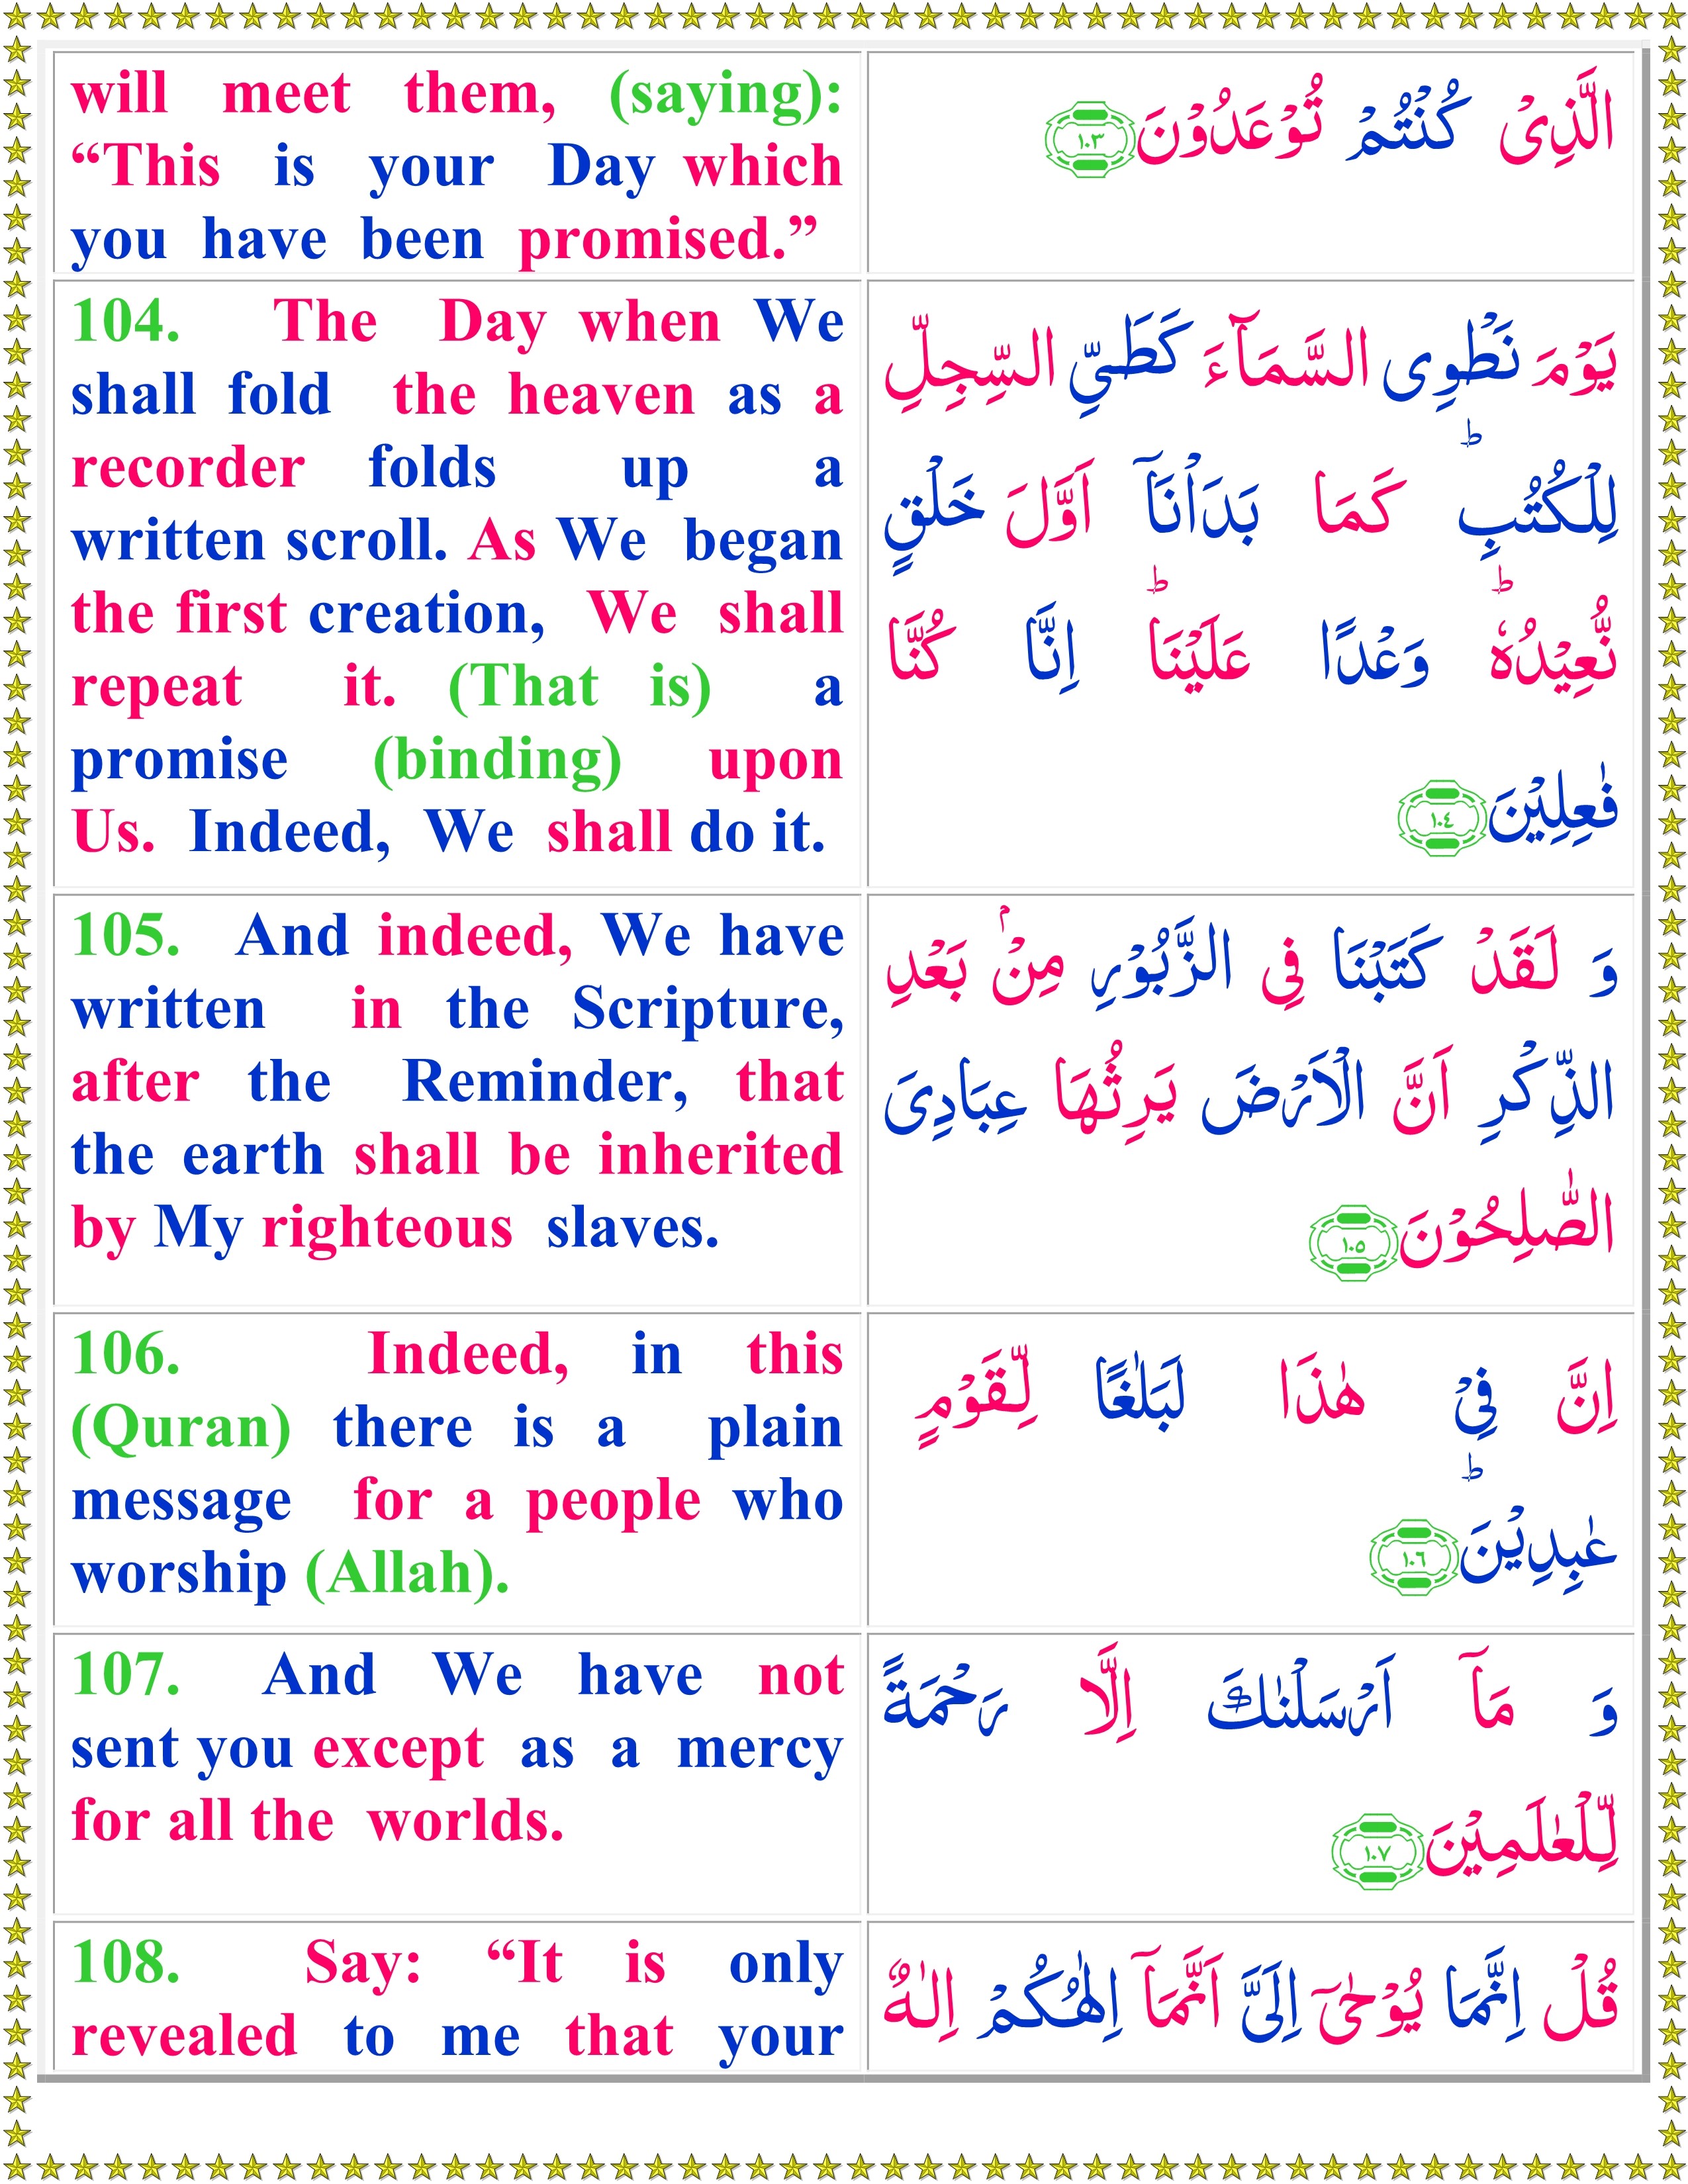 will meet them, (saying):
“This is your Day which
you have been promised.”
الَّذِیْ كُنْتُمْ تُوْعَدُوْنَ ١٠٣
104. The Day when We
shall fold the heaven as a
recorder folds up a
written scroll. As We began
the first creation, We shall
repeat it. (That is) a
promise (binding) upon
Us. Indeed, We shall do it.
یَوْمَ نَطْوِی السَّمَآءَ كَطَیِّ السِّجِلِّ
لِلْكُتُبِ ؕ كَمَا بَدَاْنَاۤ اَوَّلَ خَلْقٍ
نُّعِیْدُهٗ ؕ وَعْدًا عَلَیْنَا ؕ اِنَّا كُنَّا
فٰعِلِیْنَ ١٠٤
105. And indeed, We have
written in the Scripture,
after the Reminder, that
the earth shall be inherited
by My righteous slaves.
وَ لَقَدْ كَتَبْنَا فِی الزَّبُوْرِ مِنْۢ بَعْدِ
الذِّكْرِ اَنَّ الْاَرْضَ یَرِثُهَا عِبَادِیَ
الصّٰلِحُوْنَ ١٠٥
106. Indeed, in this
(Quran) there is a plain
message for a people who
worship (Allah).
اِنَّ فِیْ هٰذَا لَبَلٰغًا لِّقَوْمٍ
عٰبِدِیْنَ ؕ ١٠٦
107. And We have not
sent you except as a mercy
for all the worlds.
وَ مَاۤ اَرْسَلْنٰكَ اِلَّا رَحْمَةً
لِّلْعٰلَمِیْنَ ١٠٧
108. Say: “It is only
revealed to me that your
قُلْ اِنَّمَا یُوْحٰۤی اِلَیَّ اَنَّمَاۤ اِلٰهُكُمْ اِلٰهٌ